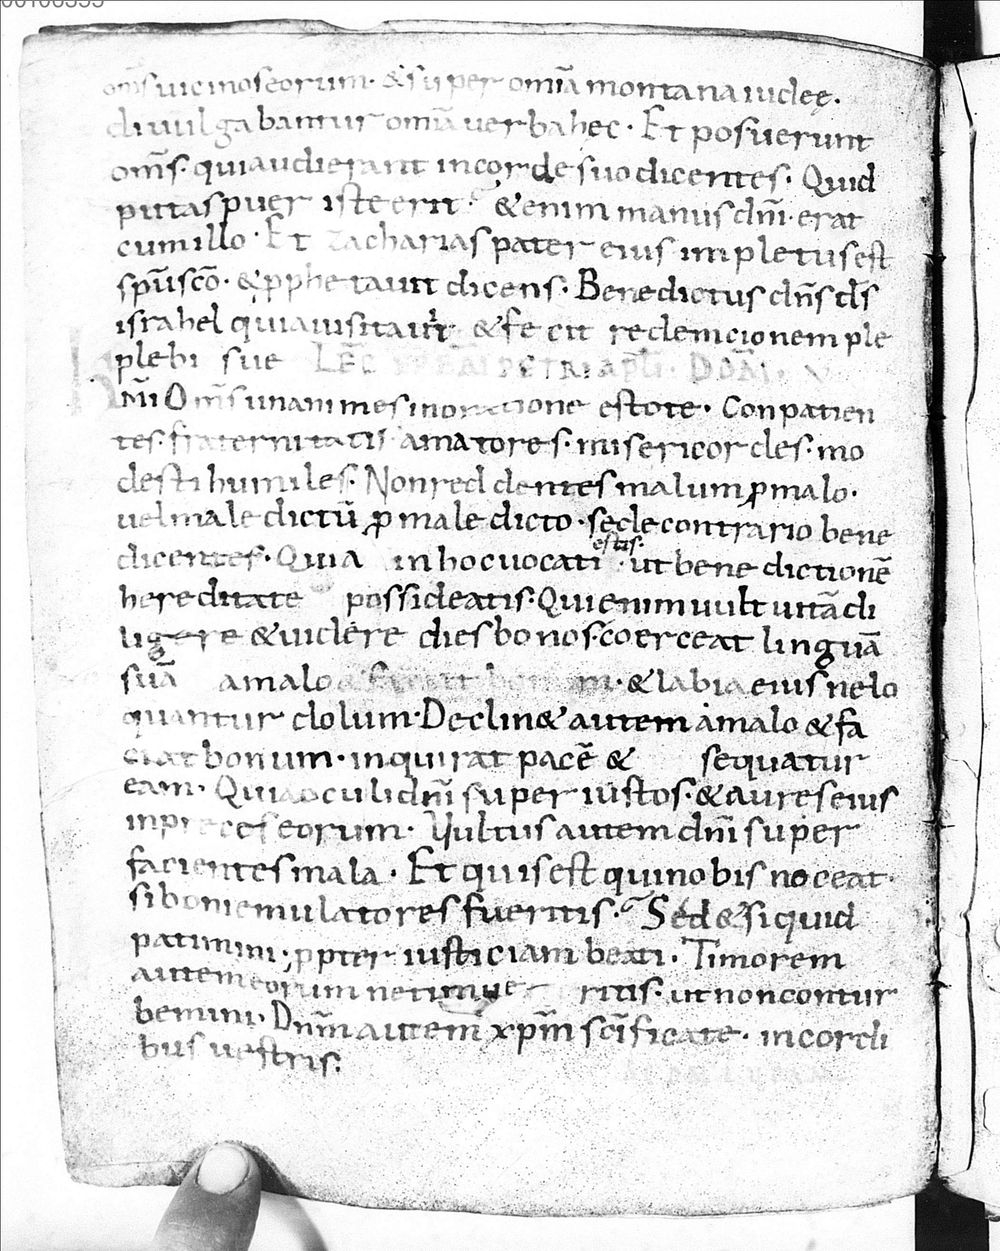 00106333
om̄s uicinos eorum · & super omīa montana iudeę .
diuulgabantur omīa uerba hec · Et posuerunt
om̄s · qui audierant in corde suo dicentes · Quid
putas puer iste erit · & enim manus dn̄i · erat
cum illo · Et zacharias pater eius impletus est
spū scō · & p̱phetauit dicens · Benedictus dn̄s ds̄
israhel quia uisitauit · & fecit redemcionem ple
plebi sue LEC̄ PETRI APL̄I · DOM̄ · V
m̄i Om̄s unanimes in oratione estote · Conpatien
tes · fraternitatis amatores · misericordes · mo
desti humiles · Non reddentes malum p̱ malo ·
uel maledictū p̱ maledicto · sed e contrario bene
dicentes · Quia in hoc uocati estis · ut benedictionē
hereditate possideatis · Qui enim uult uitā di
ligere & uidere dies bonos · coerceat linguā
suā a malo · & labia eius ne lo
quantur dolum · Declin& autem a malo & fa
ciat bonum · inquirat pacē & sequatur
eam · Quia oculi dn̄i super iustos · & aures eius
in preces eorum · Vultus autem dn̄i super
facientes mala · Et quis est qui nobis noceat ·
si boni emulatores fueritis · Sed & si quid
patimini · p̱pter iusticiam beati · Timorem
autem eorum ne timueritis · ut non contur
bemini · Dn̄m autem xp̄m sc̄ificate · in cordi
bus uestris .